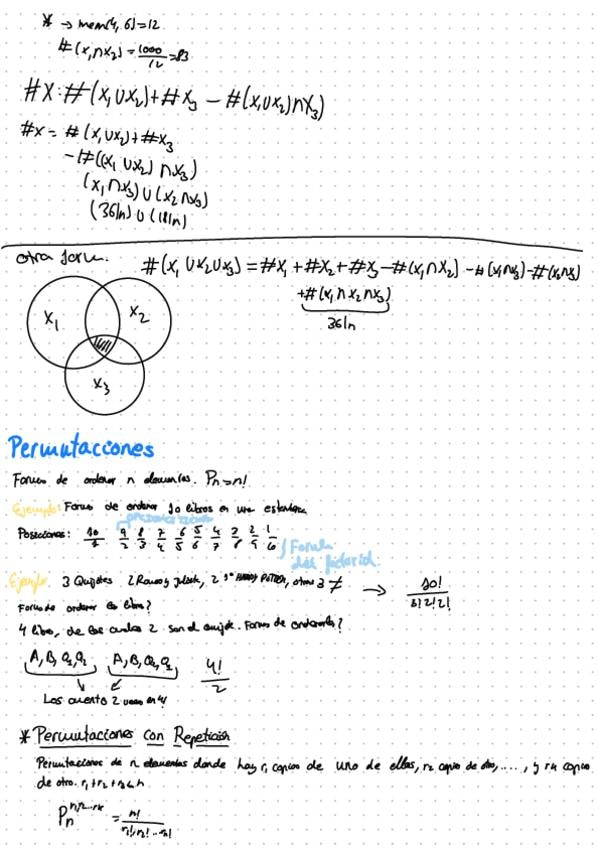 * → mcm(4, 6) = 12
#(x₁∩x₂) = 1000/12 = 83
#X: #(x₁∪x₂) + #x₃ - #(x₁∪x₂)∩x₃)
#x = #(x₁∪x₂) + #x₃
- #((x₁∪x₂) ∩x₃)
(x₁∩x₃)∪(x₂∩x₃)
(36|n)∪(18|n)
otra forma.
#(x₁∪x₂∪x₃) = #x₁ + #x₂ + #x₃ - #(x₁∩x₂) - #(x₁∩x₃) - #(x₂∩x₃)
+ #(x₁∩x₂∩x₃)
36|n
x₁ x₂
x₃
Permutaciones
Formas de ordenar n elementos. Pn = n!
Ejemplo: Formas de ordenar 10 libros en una estantería
Posiciones: 10/1 9/2 8/3 7/4 6/5 5/6 4/7 3/8 2/9 1/10
Formula
factorial.
Ejemplo: 3 Quijotes 2 Romeo y Julieta, 2 Harry Potter, otros 3 ≠ → 10!/3!2!2!
Forma de ordenar los libros?
4 libros, de los cuales 2 son el quijote. Formas de ordenarlos?
A, B, Q₁, Q₂ A, B, Q₂, Q₁ 4!/2
Los cuento 2 veces en 4!
* Permutaciones con Repetición
Permutaciones de n elementos donde hay r₁ copias de uno de ellos, r₂ copias de otro, ...., y rk copias
de otro. r₁+r₂+r₃≤n.
Pn^r₁,r₂...rk = n!/r₁!,r₂!...rk!